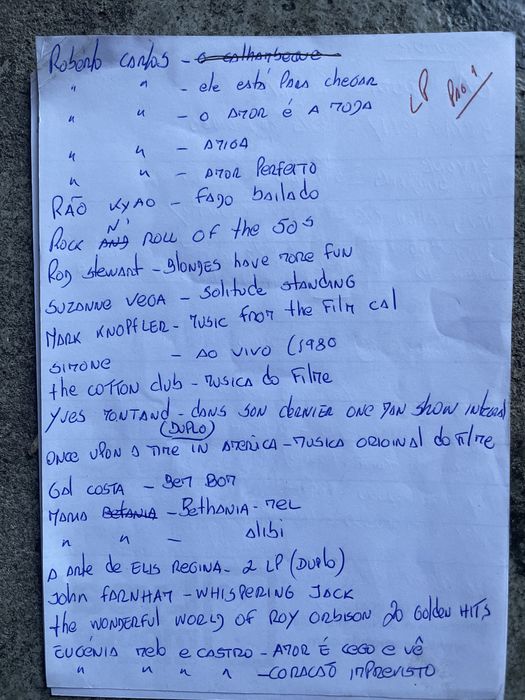 Roberto Carlos - o calhambeque
" " - ele está para chegar
LP PAG 1
" " - o AMOR é A MODA
" " - AMIGA
" " - AMOR PERFEITO
RÃO KYAO - FADO bailado
ROCK AND N' ROLL OF the 50s
Rod Stewart - Blondes have more fun
SUZANNE VEGA - Solitude STANDING
MARK KNOPFLER - MUSIC FROM the FILM CAL
SIMONE - AO VIVO (1980
the COTTON club - MUSICA do FILME
YVES MONTAND - DANS SON DERNIER ONE MAN SHOW INTEGRAL
(DUPLO)
ONCE UPON A TIME IN AMERICA - MUSICA ORIGINAL do FILME
GAL COSTA - BEM BOM
MARIA BETANIA - BEthANIA - MEL
" " - Alibi
A ARTE de ELIS REGINA - 2 LP (Duplo)
John FARNHAM - WHISPERING JACK
the WONDERFUL WORLD OF ROY ORBISON 20 Golden HITS
EUGÉNIA MELO e CASTRO - AMOR É CEGO e VÊ
" " " " - CORACÃO IMPREVISTO